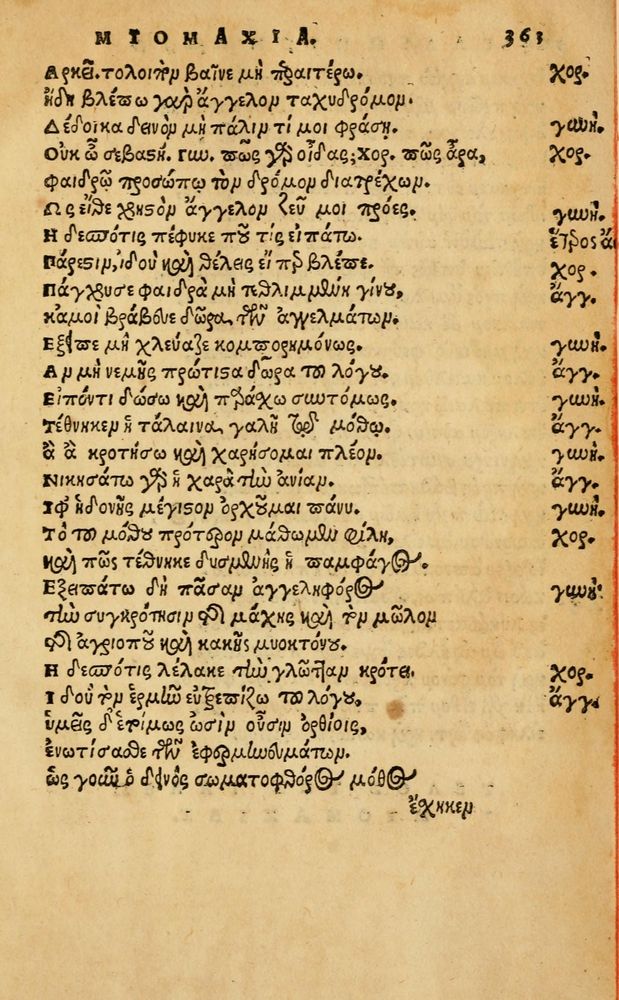 ΜΥΟΜΑΧΙΑ. 363
Αρκεῖ. τολοιπὸν βαῖνε μὴ πραιτέρω. χορ.
ἤδη βλέπω γὰρ ἄγγελον ταχυδρόμον.
Δέδοικα δεινὸν μὴ πάλιν τί μοι φράσῃ. γυνή.
Οὐκ ὦ σεβαστή. γυν. πῶς γὰρ οἶδας; χορ. πῶς ἄρα, χορ.
φαιδρῷ προσώπῳ τὸν δρόμον διατρέχων.
Ως εἴθε χρηστὸν ἄγγελον ζεῦ μοι πρόες. γυνή.
Η δεσπότις πέφυκε ποῦ τίς εἰπάτω. ἕτερος ἄ
Πάρεστιν, ἰδοὺ καὶ θέλεις εἴπερ βλέπε. χορ.
Πάγχρυσε φαιδρὰ μὴ τεθλιμμένη γίνου, ἄγγ.
κἀμοὶ βράβευε δῶρα τῶν ἀγγελμάτων.
Εξεῖπε μὴ χλεύαζε κομπορρημόνως. γυνή.
Αν μὴ νεμῇς πρώτιστα δῶρα τοῦ λόγου. ἄγγ.
Εἰπόντι δώσω καὶ παράσχω συντόμως. γυνή.
Τέθνηκεν ἡ τάλαινα γαλῆ ἐν μόθῳ. ἄγγ.
ἆ ἆ κροτήσω καὶ χαρήσομαι πλέον. γυνή.
Νικησάτω γὰρ ἡ χαρὰ τὴν ἀνίαν. ἄγγ.
Ιφ᾽ ἡδονῆς μέγιστον ὀρχοῦμαι πάνυ. γυνή.
Τὸ τοῦ μόθου πρότερον μάθωμεν φίλη, χορ.
καὶ πῶς τέθνηκε δυσμενὴς ἡ παμφάγος.
Εξειπάτω δὴ πᾶσαν ἀγγεληφόρος γυνή.
τὴν συγκρότησιν τῆς μάχης καὶ τὸν μῶλον
τῆς ἀγριοποῦ καὶ κακῆς μυοκτόνου.
Η δεσπότις λέλακε τὴν γλῶτταν κρότει. χορ.
Ιδοὺ τὸν εἱρμὸν εὐτρεπίζω τοῦ λόγου, ἄγγ.
ὑμεῖς δ᾽ ἑτοίμως ὠσὶν οὖσιν ὀρθίοις,
ἐνωτίσασθε τῶν ἐφερμηνευμάτων.
ὡς γοῦν ὁ δεινὸς σωματοφθόρος μόθος
ἔθηκεν